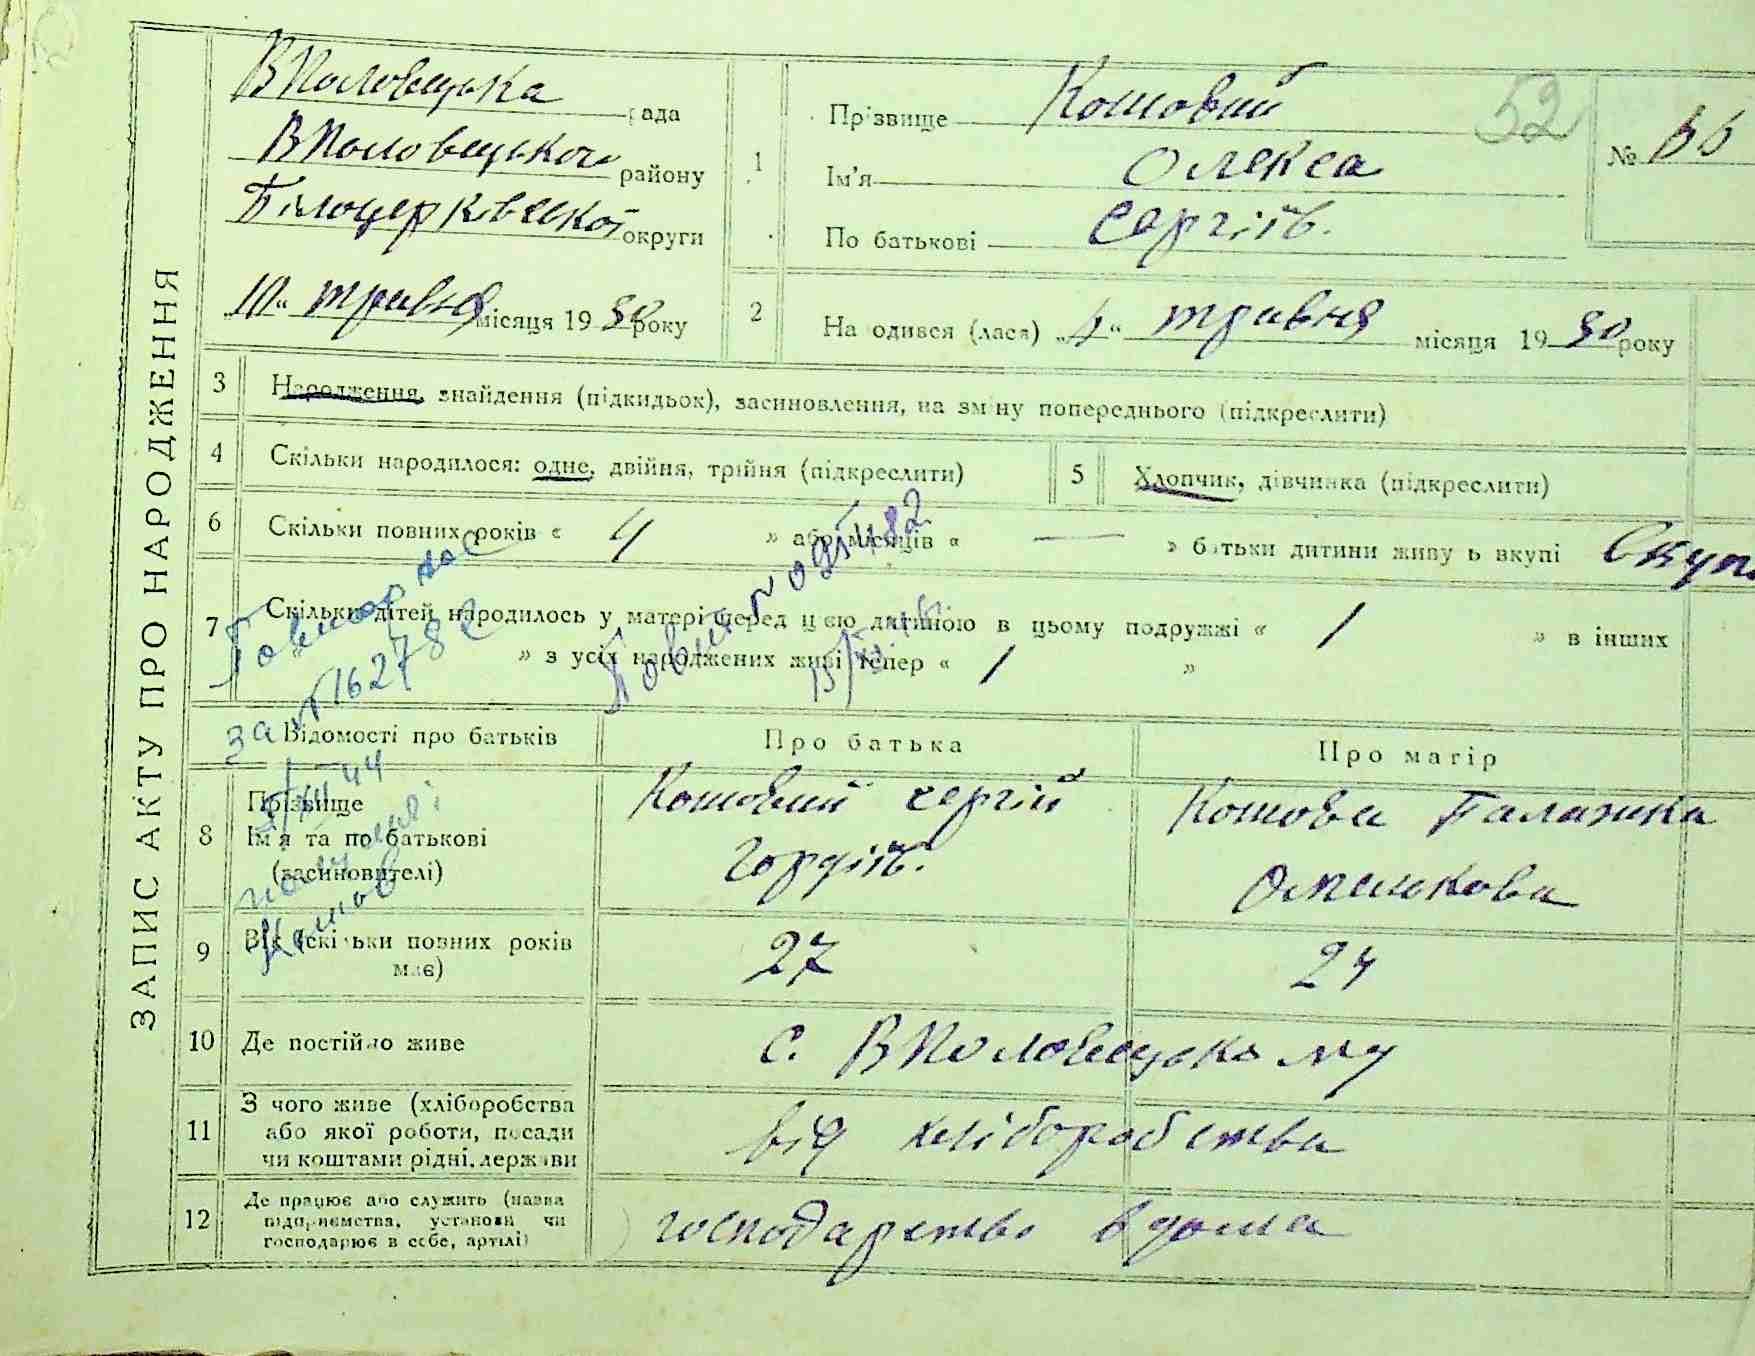 ЗАПИС АКТУ ПРО НАРОДЖЕННЯ
ВПоловецька рада
ВПоловецького району
Білоцерківської округи
"10" травня місяця 1930 року
52
№
1 Прізвище Кошовий
Ім'я Олекса
По батькові Сергіїв.
2 Народився (лася) "4" травня місяця 1930 року
3 Народження, знайдення (підкидьок), засиновлення, на зміну попереднього (підкреслити)
4 Скільки народилося: одне, двійня, трійня (підкреслити)
5 Хлопчик, дівчинка (підкреслити)
6 Скільки повних років « 4 » або місяців « — » батьки дитини живуть вкупі
7 Скільки дітей народилось у матері перед цією дитиною в цьому подружжі « 1 » в інших
» з усіх народжених живі тепер « 1 »
Відомості про батьків
Про батька
Про матір
8 Прізвище
Ім'я та по батькові
(засиновителі)
Кошовий Сергій
Гордіїв.
Кошова Палажка
Омелькова
9 Вік (скільки повних років
має)
27
24
10 Де постійно живе
с. ВПоловецькому
11 З чого живе (хліборобства
або якої роботи, посади
чи коштами рідні, держави
від хліборобства
12 Де працює або служить (назва
підприємства, установи чи
господарює в себе, артілі)
господарство вдома